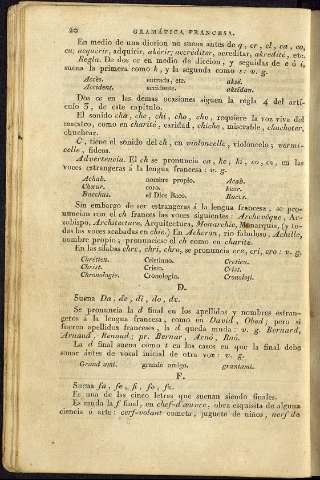 20 GRAMÁTICA FRANCESA.
En medio de una diccion no suena antes de q, cr, cl, ca, co,
cu; acquerir, adquirir, akérir; accréditer, acreditar, akredité, etc.
Regla. De dos cc en medio de diccion, y seguidas de e ó i,
suena la primera como k, y la segunda como s: v. g.
Accès. entrada, etc. aksé.
Accident. accidente. aksidan.
Dos cc en las demas ocasiones siguen la regla 4 del artí-
culo 3, de este capítulo.
El sonido cha, che, chi, cho, chu, requiere la voz viva del
maestro, como en charité, caridad, chiche, miserable, chuchoter,
chuchear.
C, tiene el sonido del ch, en violoncelle, violoncelo; vermi-
celle, fideos.
Advertencia. El ch se pronuncia ca, ke, ki, co, cu, en las
voces estrangeras á la lengua francesa: v. g.
Achab. nombre propio. Acab.
Chœur. coro. keur.
Bacchus. el Dios Baco. Bacus.
Sin embargo de ser estrangeras á la lengua francesa, se pro-
nuncian con el ch frances las voces siguientes: Archevêque, Ar-
zobispo, Architecture, Arquitectura, Monarchie, Monarquía, (y to-
das las voces acabadas en chie.) En Acheron, rio fabuloso, Achille,
nombre propio; pronunciese el ch como en charité.
En las silabas chre, chri, chro, se pronuncia cre, cri, cro: v. g.
Chrétien. Cristiano. Cretien.
Christ. Cristo. Crist.
Chronologie. Cronología. Cronoloji.
D.
Suena Da, de, di, do, du.
Se pronuncia la d final en los apellidos y nombres estran-
geros á la lengua francesa, como en David, Obed; pero si
fueren apellidos franceses, la d queda muda: v. g. Bernard,
Arnaud, Renaud; pr. Bernar, Arnó, Renó.
La d final suena como t en los casos en que la final debe
sonar antes de vocal inicial de otra voz: v. g.
Grand ami. grande amigo. grantami.
F.
Suena fa, fe, fi, fo, fu.
Es una de las cinco letras que suenan siendo finales.
Es muda la f final, en chef-d'œuvre, obra esquisita de alguna
ciencia ó arte: cerf-volant cometa, juguete de niños, nerf de